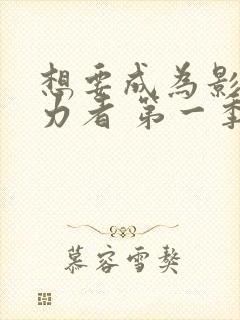 想要成为影
力者 第一季
慕容雪獒